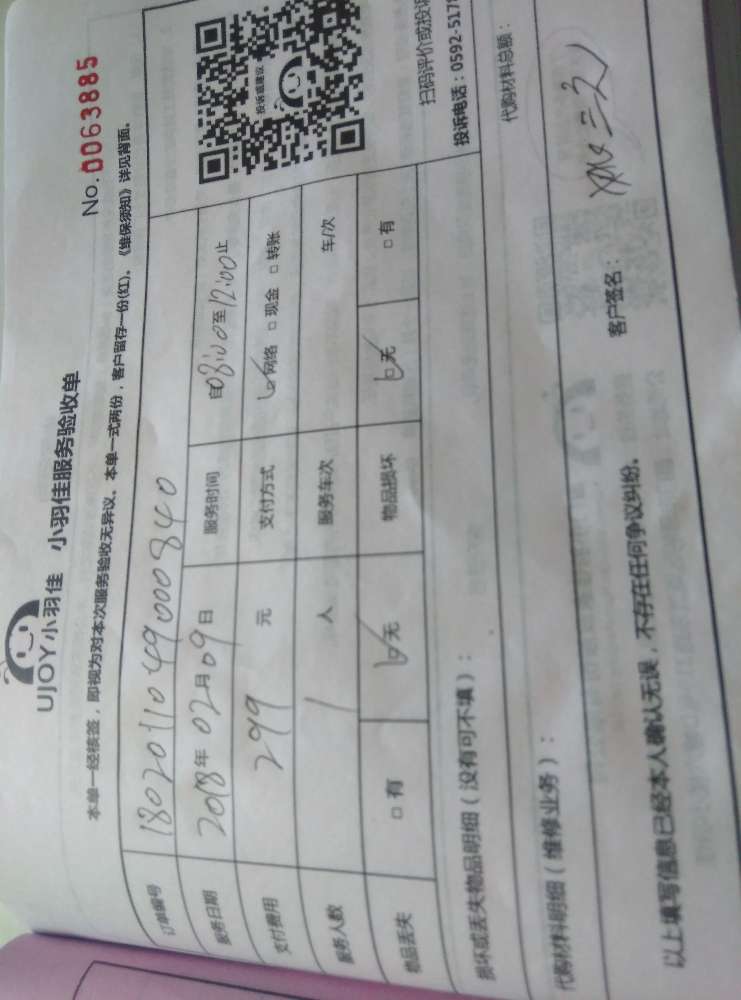 UJOY小羽佳 小羽佳服务验收单
No.0063885
本单一经核签，即视为对本次服务验收无异议。本单一式两份，客户留存一份(红)。《维保须知》详见背面。
订单编号 180201104900840
服务日期 2018年02月09日 服务时间 自08:00至12:00止
支付费用 299 元 支付方式 ☑网络 □现金 □转账
服务人数 1 人 服务车次 车/次
物品丢失 □有 ☑无 物品损坏 ☑无 □有
投诉或建议
扫码评价或投诉
投诉电话：0592-517
损坏或丢失物品明细（没有可不填）：
代购材料明细（维修业务）： 代购材料总额：
以上填写信息已经本人确认无误，不存在任何争议纠纷。 客户签名：